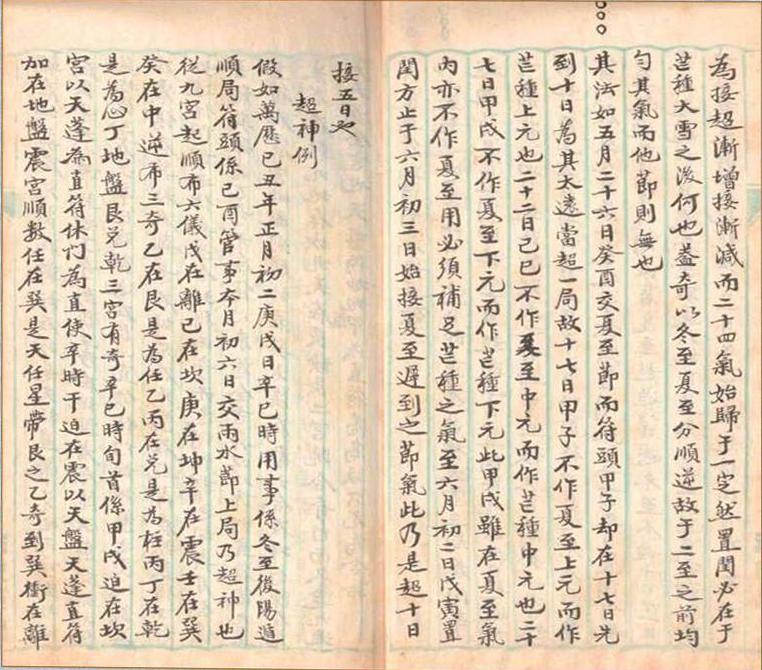 為接超漸增接漸減而二十四氣始歸于一定然置閏必在于
芒種大雪之後何也蓋奇以冬至夏至分順逆故于二至之前均
勻其氣而他節則無也
其法如五月二十六日癸酉交夏至節而符頭甲子却在十七日先
到十日為其太遠當超一局故十七日甲子不作夏至上元而作
芒種上元也二十二日己巳不作夏至中元而作芒種中元也二十
七日甲戌不作夏至下元而作芒種下元此甲戌雖在夏至氣
內亦不作夏至用必須補足芒種之氣至六月初二日戊寅置
閏方止于六月初三日始接夏至遲到之節氣此乃是超十日
接五日也
超神例
假如萬歷己丑年正月初二庚戌日辛巳時用事係冬至後陽遁
順局符頭係己酉管事本月初六日交雨水節上局乃超神也
從九宮起順布六儀戊在離己在坎庚在坤辛在震壬在巽
癸在中逆布三奇乙在艮是為任乙丙在兌是為柱丙丁在乾
是為心丁地盤艮兌乾三宮有奇辛巳時旬首係甲戌迫在坎
宮以天蓬為直符休门為直使辛時干迫在震以天盤天蓬直符
加在地盤震宮順數任在巽是天任星帶艮之乙奇到巽衝在離